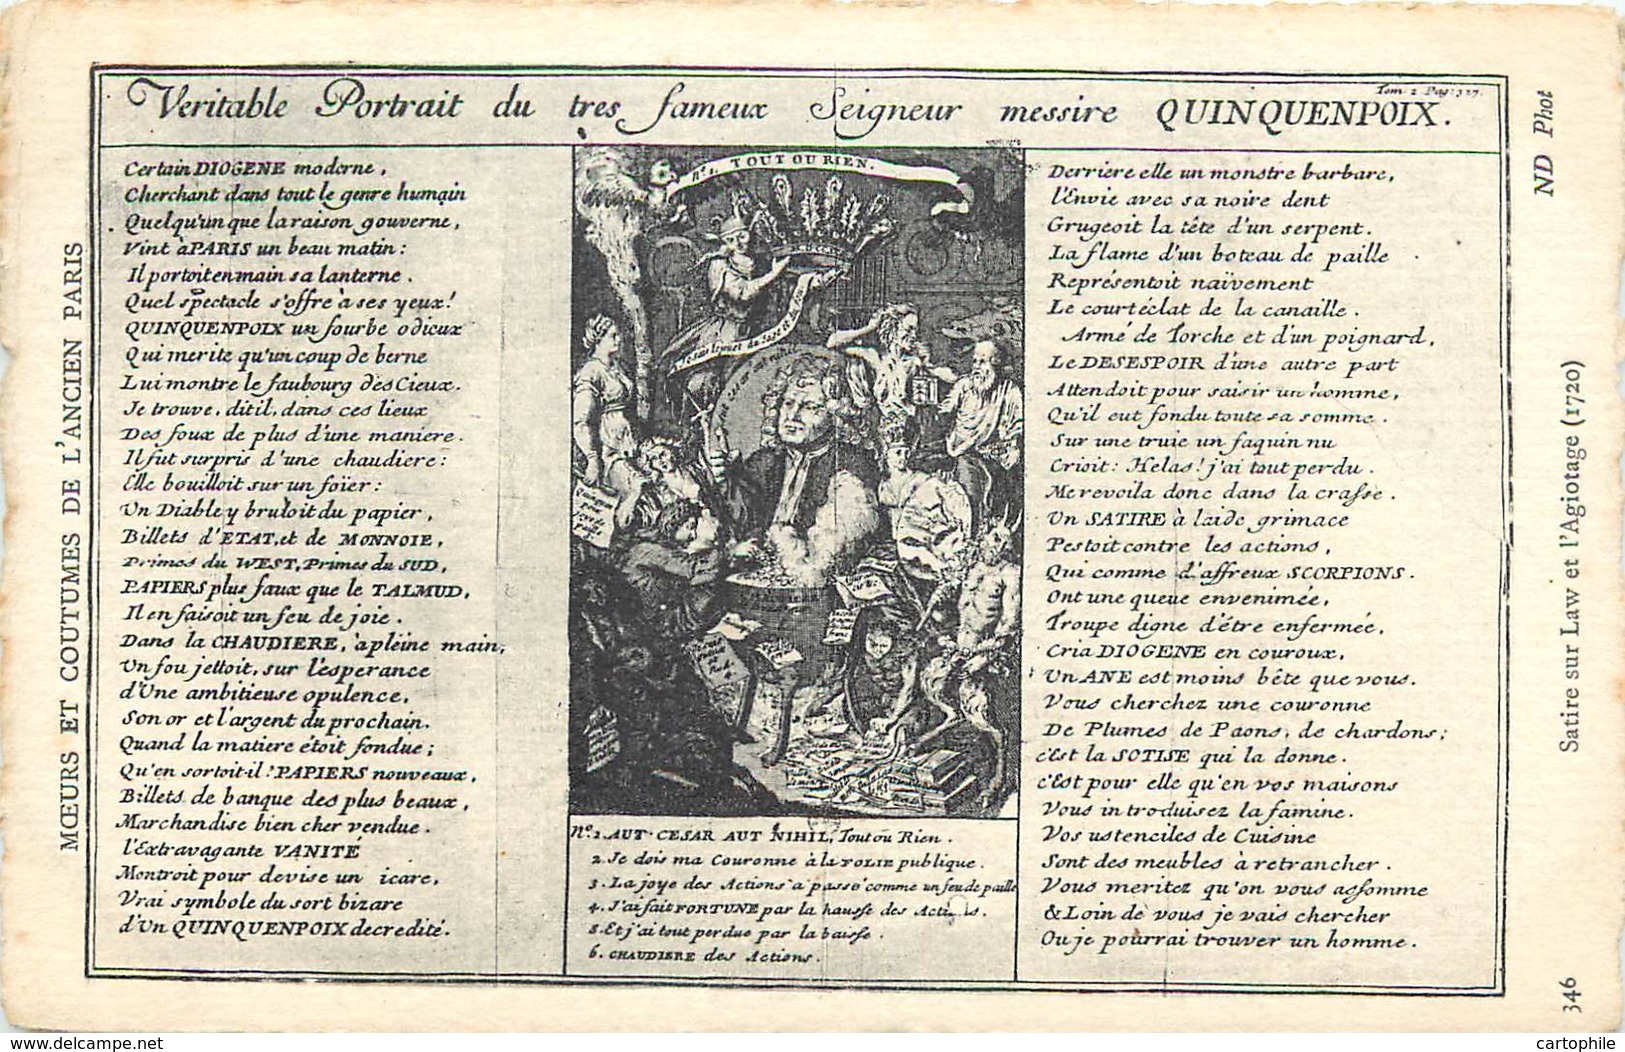 Tom: 2. Pag: 327.
Veritable Portrait du tres fameux Seigneur messire QUINQUENPOIX.
Certain DIOGENE moderne,
Cherchant dans tout le genre humain
Quelqu'un que la raison gouverne,
Vint à PARIS un beau matin:
Il portoit en main sa lanterne.
Quel spectacle s'offre à ses yeux!
QUINQUENPOIX un fourbe odieux
Qui merite qu'un coup de berne
Lui montre le faubourg des Cieux.
Je trouve, dit il, dans ces lieux
Des foux de plus d'une maniere.
Il fut surpris d'une chaudiere:
Elle bouilloit sur un foïer:
Un Diable y bruloit du papier,
Billets d'ETAT, et de MONNOIE,
Primes du WEST, Primes du SUD,
PAPIERS plus faux que le TALMUD,
Il en faisoit un feu de joie.
Dans la CHAUDIERE, à pleine main,
Un fou jettoit, sur l'esperance
d'Une ambitieuse opulence,
Son or et l'argent du prochain.
Quand la matiere étoit fondue;
Qu'en sortoit-il? PAPIERS nouveaux,
Billets de banque des plus beaux,
Marchandise bien cher vendue.
l'Extravagante VANITÉ
Montroit pour devise un icare,
Vrai symbole du sort bizare
d'Un QUINQUENPOIX decredité.
No. 1. TOUT OU RIEN.
No. 1. AUT CESAR AUT NIHIL, Tout ou Rien.
2. Je dois ma Couronne à la FOLIE publique.
3. La joye des Actions a passé comme un feu de paille
4. J'ai fait FORTUNE par la hausse des Actions.
5. Et j'ai tout perdue par la baisse.
6. CHAUDIERE des Actions.
Derriere elle un monstre barbare,
l'Envie avec sa noire dent
Grugeoit la tête d'un serpent.
La flame d'un boteau de paille
Représentoit naïvement
Le court éclat de la canaille.
Armé de Torche et d'un poignard,
Le DESESPOIR d'une autre part
Attendoit pour saisir un homme,
Qu'il eut fondu toute sa somme.
Sur une truie un faquin nu
Crioit: Helas! j'ai tout perdu.
Me revoila donc dans la crasse.
Un SATIRE à laide grimace
Pestoit contre les actions,
Qui comme d'affreux SCORPIONS.
Ont une queue envenimée,
Troupe digne d'étre enfermée,
Cria DIOGENE en couroux,
Un ANE est moins bête que vous.
Vous cherchez une couronne
De Plumes de Paons, de chardons;
c'Est la SOTISE qui la donne.
c'Est pour elle qu'en vos maisons
Vous introduisez la famine.
Vos ustenciles de Cuisine
Sont des meubles à retrancher.
Vous meritez qu'on vous assomme
& Loin de vous je vais chercher
Ou je pourrai trouver un homme.
MŒURS ET COUTUMES DE L'ANCIEN PARIS
ND Phot
Satire sur Law et l'Agiotage (1720)
346
www.delcampe.net
cartophile